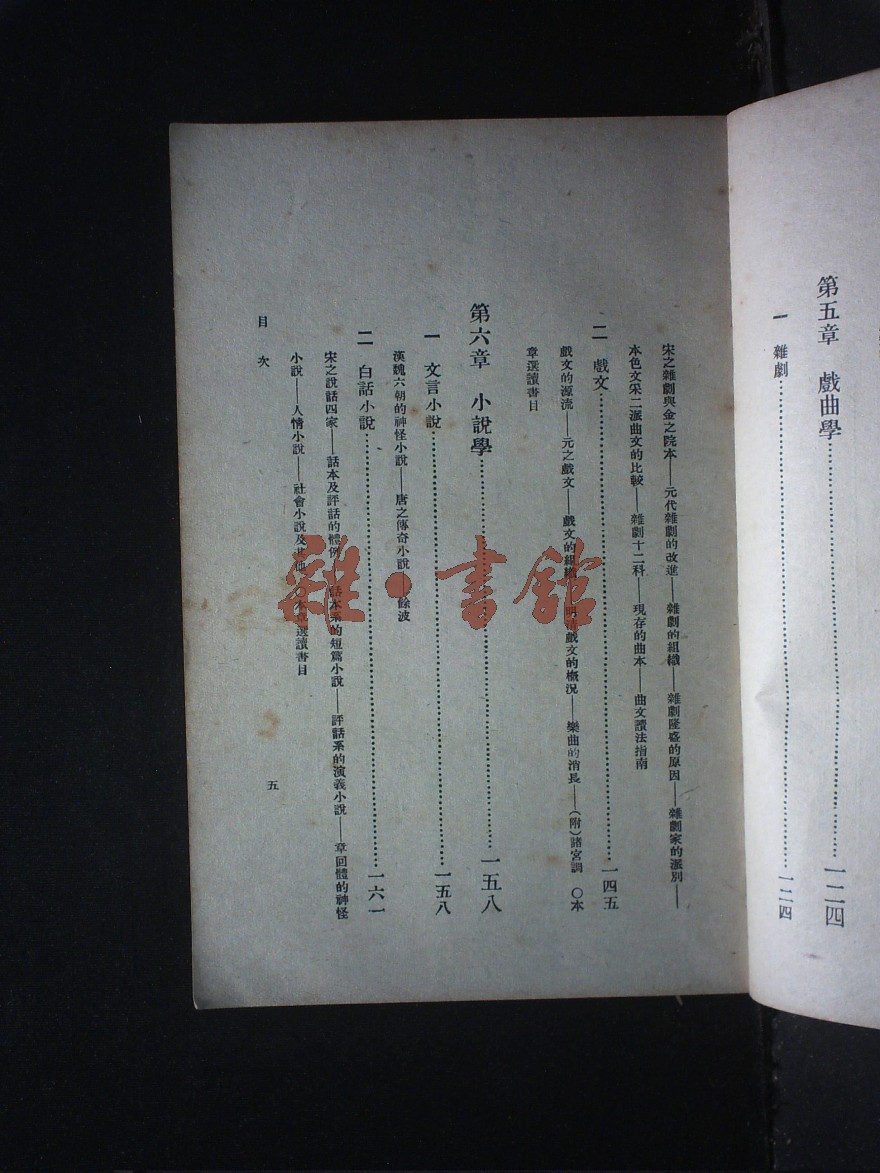 第五章　戲曲學……一二四
一　雜劇……一二四
宋之雜劇與金之院本——元代雜劇的改進——雜劇的組織——雜劇隆盛的原因——雜劇家的派別——
本色文采二派曲文的比較——雜劇十二科——現存的曲本——曲文讀法指南
二　戲文……一四五
戲文的源流——元之戲文——戲文的組織——明清戲文的概況——樂曲的消長——(附)諸宮調　〇本
章選讀書目
第六章　小說學……一五八
一　文言小說……一五八
漢魏六朝的神怪小說——唐之傳奇小說——餘波
二　白話小說……一六一
宋之說話四家——話本及評話的體例——話本系的短篇小說——評話系的演義小說——章回體的神怪
小說——人情小說——社會小說及其他　〇本章選讀書目
目次
五
雜·書館